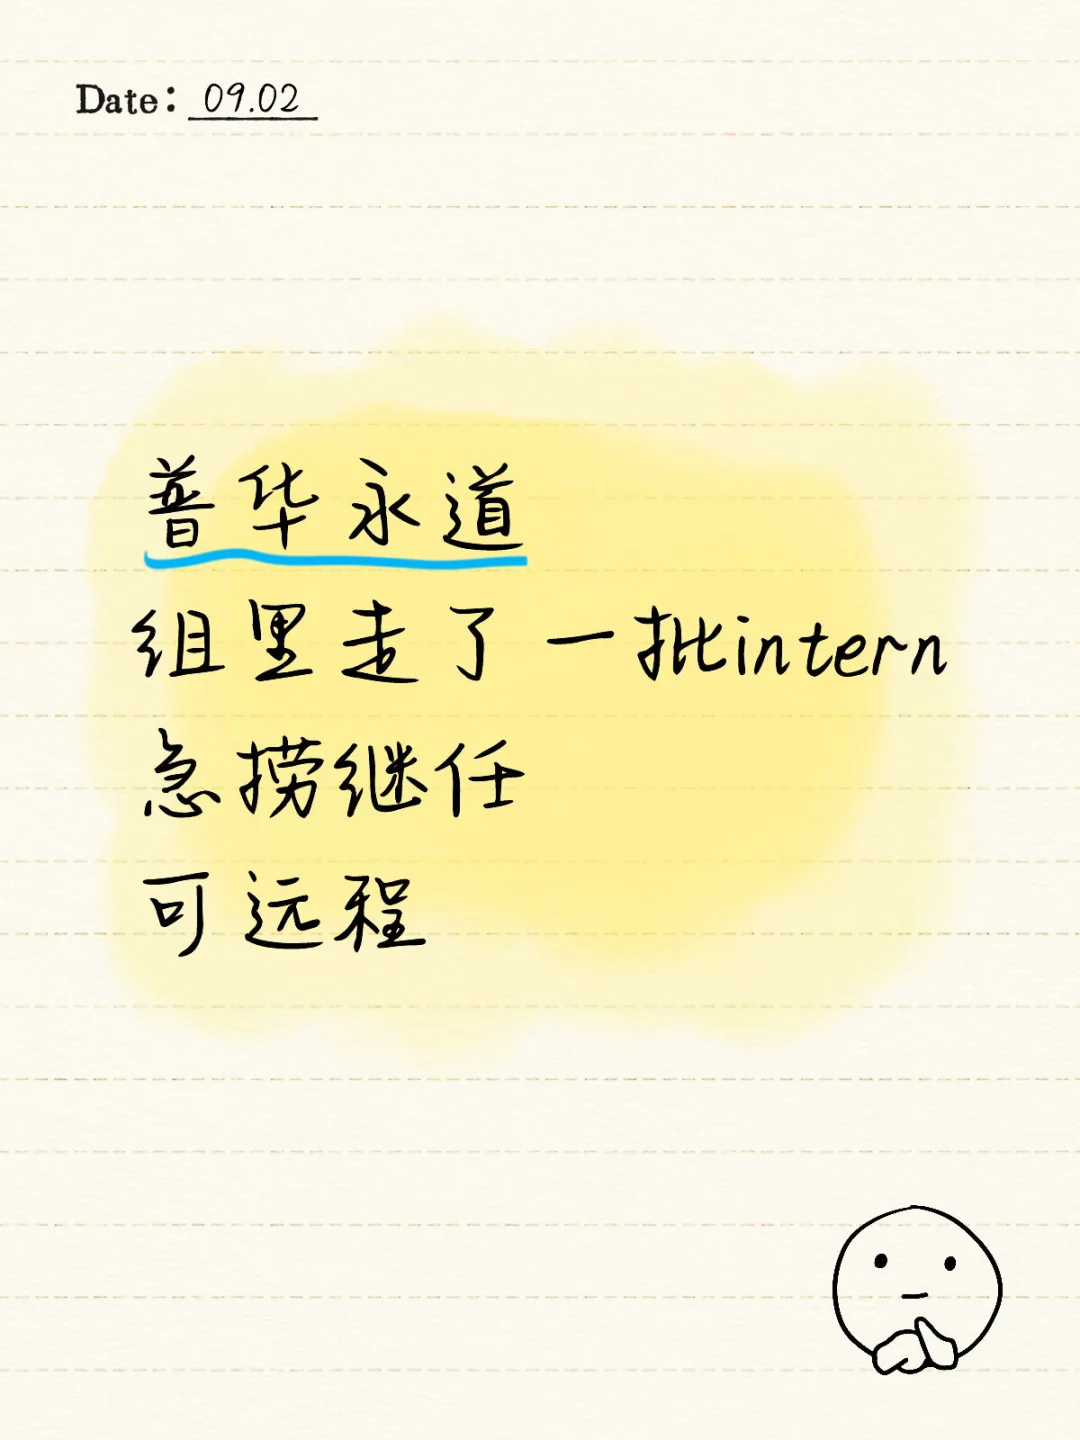 Date: 09.02
普华永道
组里走了一批intern
急捞继任
可远程